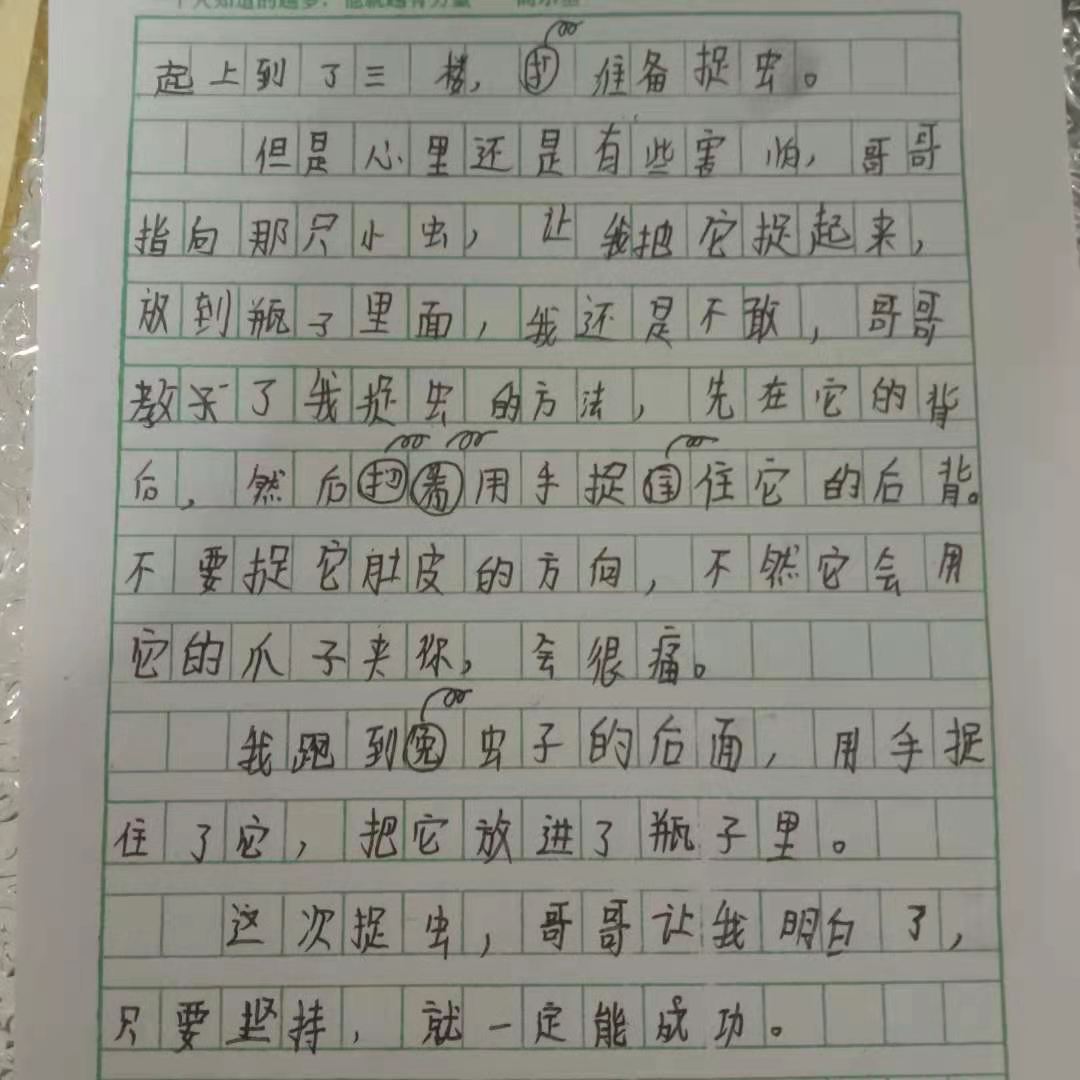 一个人知道的越多，他就越有力量
起上到了三楼，准备捉虫。
但是心里还是有些害怕，哥哥
指向那只小虫，让我把它捉起来，
放到瓶子里面，我还是不敢，哥哥
教了我捉虫的方法，先在它的背
后，然后用手捉住它的后背。
不要捉它肚皮的方向，不然它会用
它的爪子夹你，会很痛。
我跑到虫子的后面，用手捉
住了它，把它放进了瓶子里。
这次捉虫，哥哥让我明白了，
只要坚持，就一定能成功。